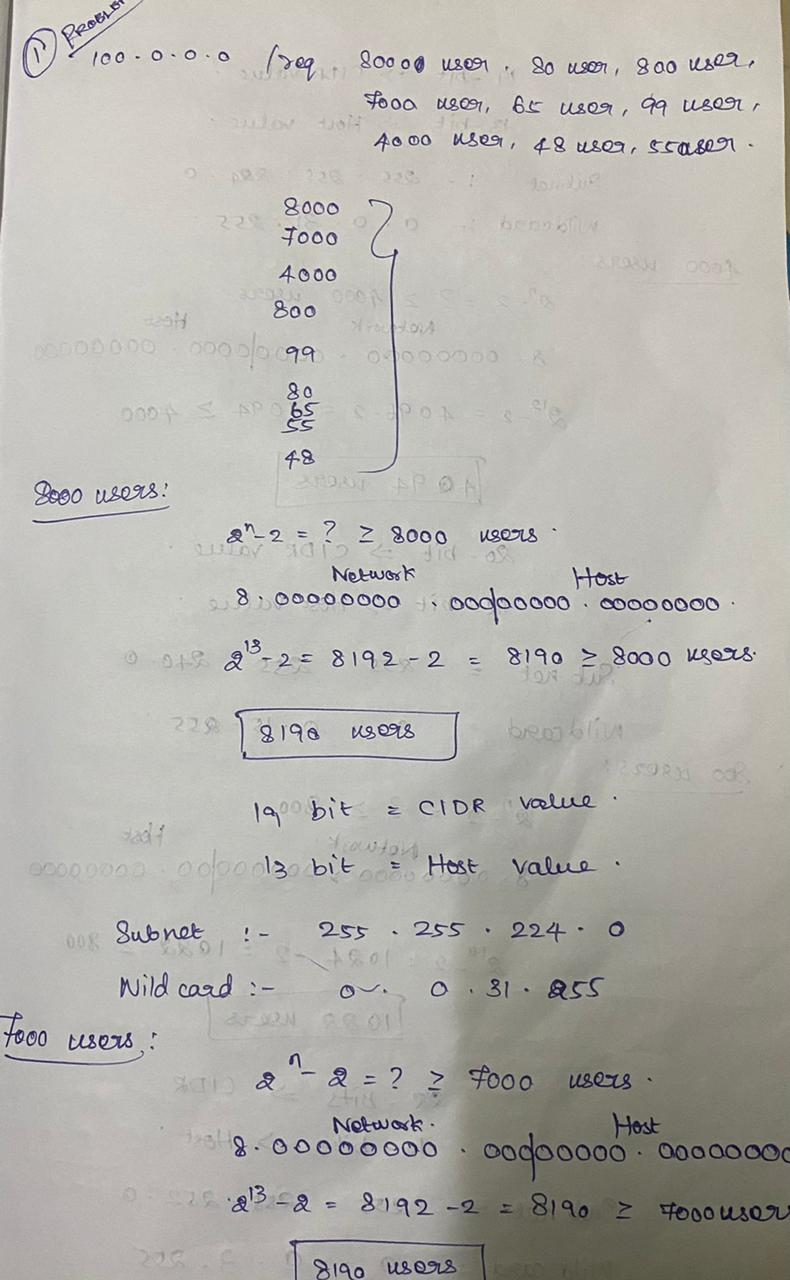 1) PROBLEM
100.0.0.0 /req 80000 user, 80 user, 800 user,
7000 user, 65 user, 99 user,
4000 user, 48 user, 55 user.
8000
7000
4000
800
99
80
65
55
48
8000 users:
2ⁿ-2 = ? ≥ 8000 users.
Network Host
8.00000000.000|00000.00000000.
2¹³-2 = 8192-2 = 8190 ≥ 8000 users.
8190 users
19 bit = CIDR value.
13 bit = Host value.
Subnet :- 255.255.224.0
Wild card :- 0.0.31.255
7000 users:
2ⁿ-2 = ? ≥ 7000 users.
Network. Host
8.00000000.000|00000.00000000
2¹³-2 = 8192-2 = 8190 ≥ 7000 user
8190 users